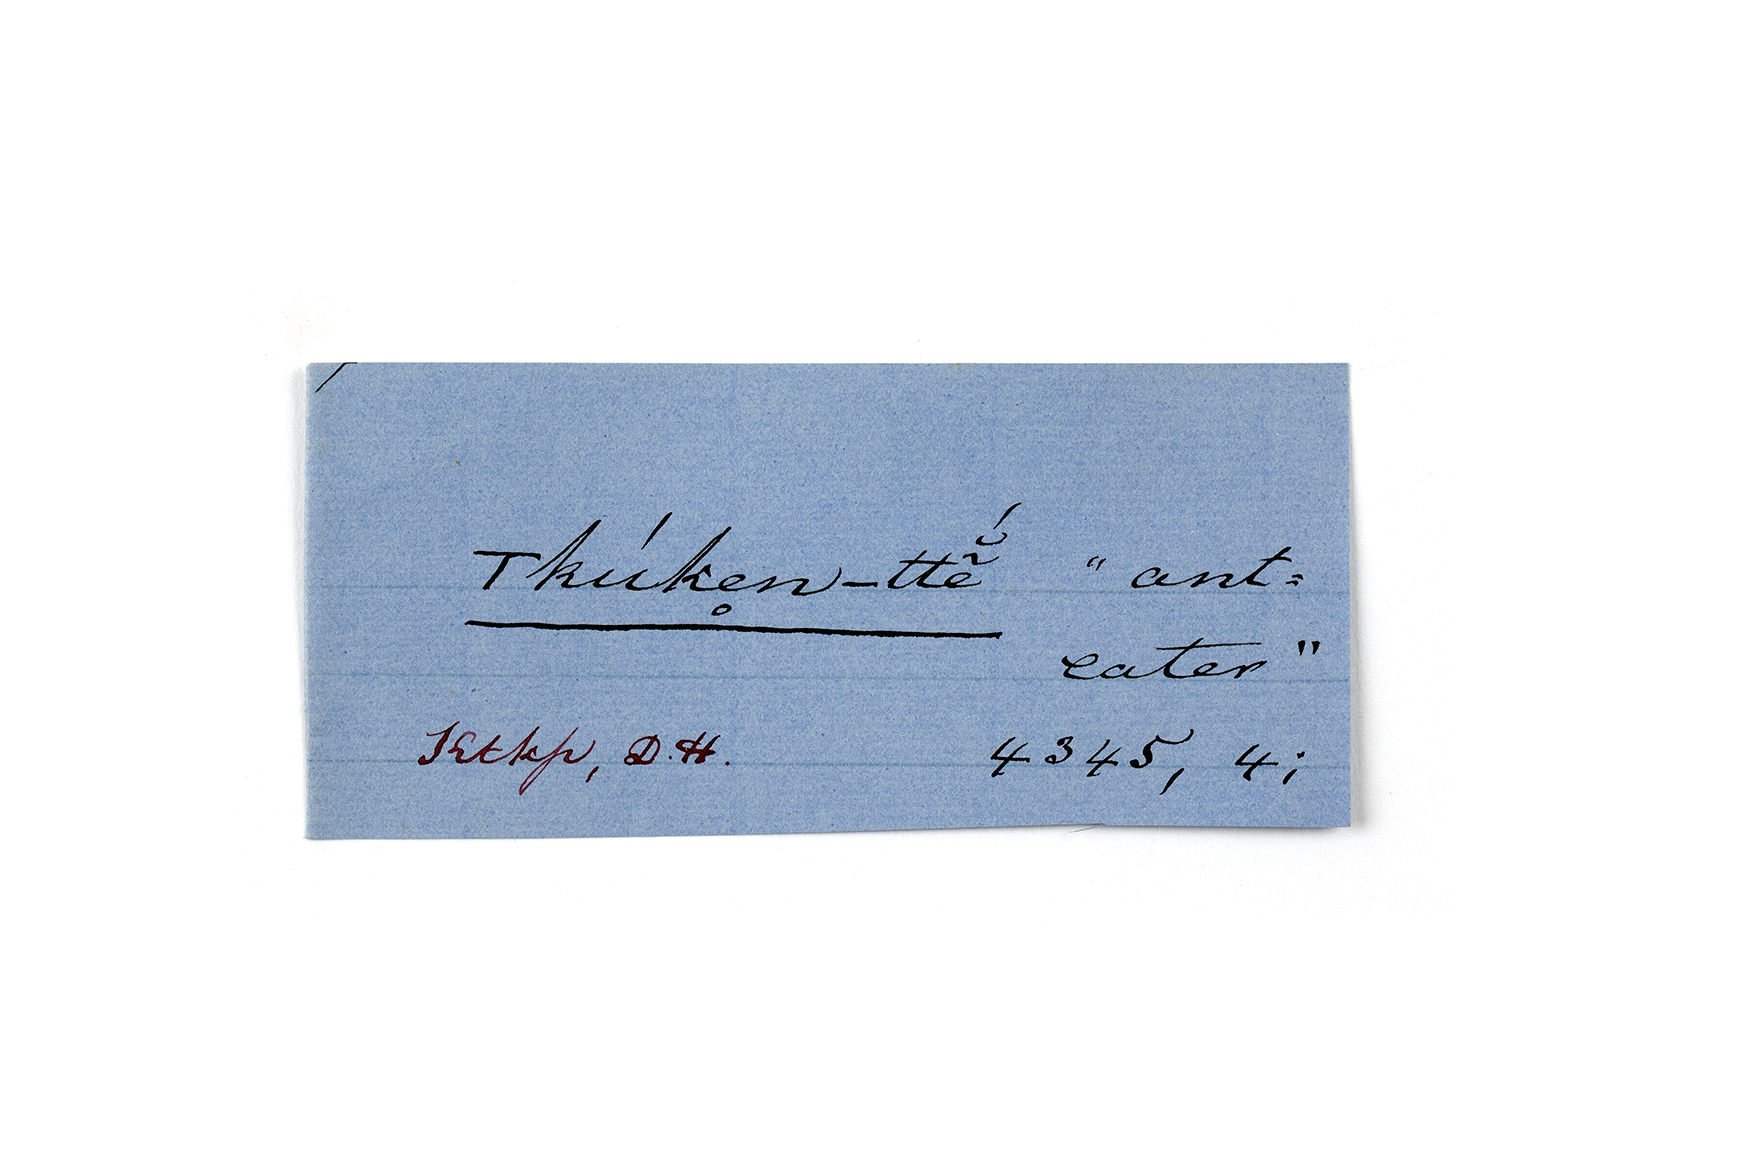 Tkúken̥-ttẽ̆́ " ant=
eater "
Ktkp, D.H. 4345, 4;